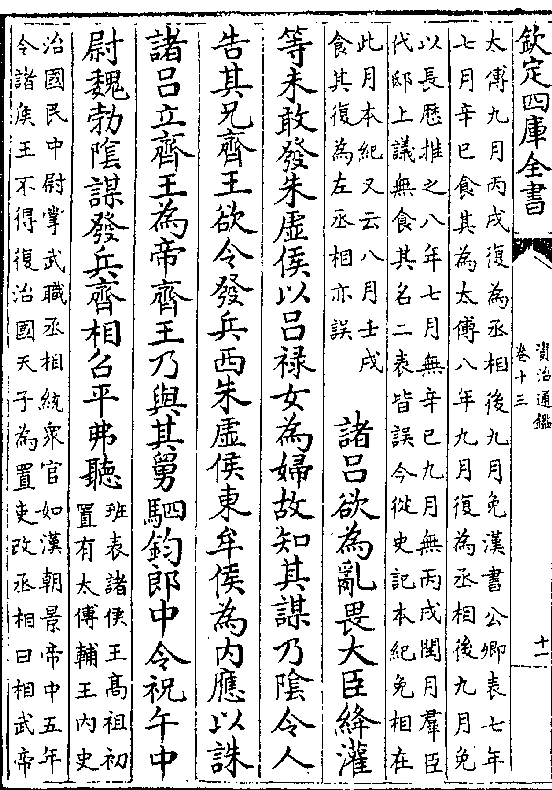 欽定四庫全書
資治通鑑
卷十三
十二
太傅九月丙戌復為丞相後九月免漢書公卿表七年
七月辛巳食其為太傅八年九月復為丞相後九月免
以長歴推之八年七月無辛巳九月無丙戌閏月羣臣
代邸上議無食其名二表皆誤今從史記本紀免相在
此月本紀又云八月壬戌
食其復為左丞相亦誤
諸吕欲為亂畏大臣絳灌
等未敢發朱虚侯以吕禄女為婦故知其謀乃陰令人
告其兄齊王欲令發兵西朱虚侯東牟侯為内應以誅
諸吕立齊王為帝齊王乃與其舅駟鈞郎中令祝午中
尉魏勃陰謀發兵齊相召平弗聽
班表諸侯王髙祖初
置有太傅輔王内史
治國民中尉掌武職丞相統衆官如漢朝景帝中五年
令諸侯王不得復治國天子為置吏改丞相曰相武帝